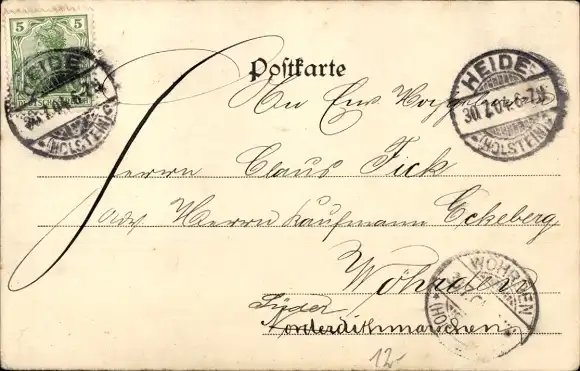 5 5
HEIDE
30.7.04.6-7N.
*(HOLSTEIN)*
Postkarte
HEIDE
30.7.04.6-7N.
*(HOLSTEIN)*
An Ew.
Herrn Claus Fick
adr. Herrn Kaufmann Eckeberg
Wöhrden
WÖHRDEN
(HOLST.)
Süder
Norderdithmarschen
12-